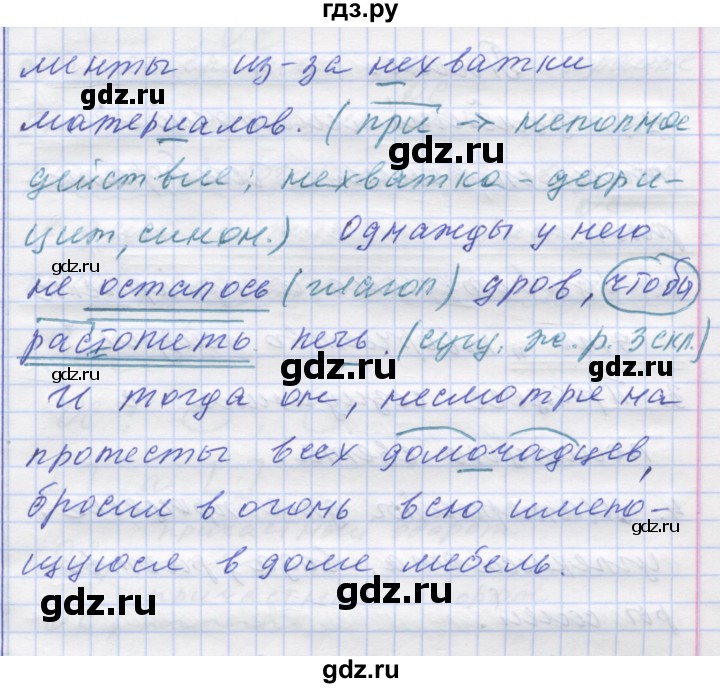 гдз.ру
менты из-за нехватки
gdz.ru
материалов. (при → неполное
gdz.ru
действие; нехватка - дефи-
цит, синон.) Однажды у него
gdz.ru
не осталось (глагол) дров, чтобы
gdz.ru
растопить печь. (сущ. ж. р. 3 скл.)
gdz.ru
И тогда он, несмотря на
протесты всех домочадцев,
gdz.ru
бросил в огонь всю имею-
gdz.ru
щуюся в доме мебель.
gdz.ru
gdz.ru
gdz.ru